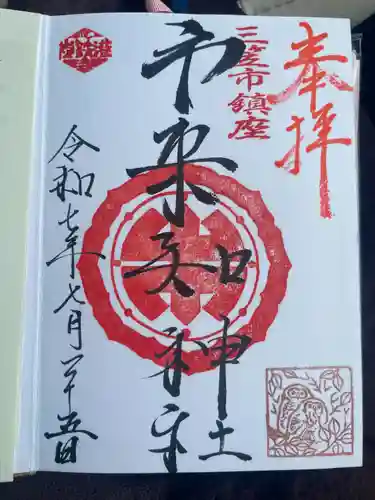 奉拝
三笠市鎮座
市来知神社
令和七年七月二十五日